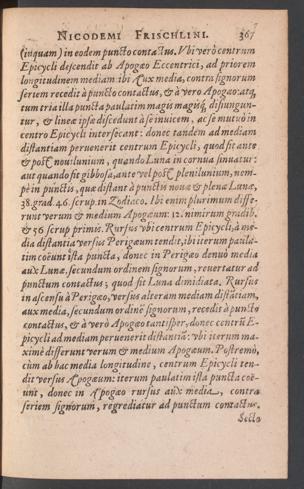 NICODEMI FRISCHLINI. 367
(inquam) in eodem puncto contactus. Vbi verò centrum
Epicycli descendit ab Apogæo Eccentrici, ad priorem
longitudinem mediam ibi Aux media, contra signorum
seriem recedit à puncto contactus, & à vero Apogæo: atq;
tum tria illa puncta paulatim magis magisq; disiungun-
tur, & lineæ ipsæ discedunt à se inuicem, ac se mutuò in
centro Epicycli intersecant: donec tandem ad mediam
distantiam peruenerit centrum Epicycli, quod fit ante
& post nouilunium, quando Luna in cornua sinuatur:
aut quando fit gibbosa, ante vel post plenilunium, nem-
pè in punctis, quæ distant à punctis nouæ & plenæ Lunæ,
38. grad. 46. scrup. in Zodiaco. Ibi enim plurimum diffe-
runt verum & medium Apogæum: 12. nimirum gradib.
& 56 scrup primis. Rursus vbi centrum Epicycli, à me-
dia distantia versus Perigæum tendit, ibi iterum paula-
tim coëunt ista puncta, donec in Perigæo denuò media
aux Lunæ, secundum ordinem signorum, reuertatur ad
punctum contactus; quod fit Luna dimidiata. Rursus
in ascensu à Perigæo, versus alteram mediam distãtiam,
aux media, secundum ordinẽ signorum, recedit à puncto
contactus, & à verò Apogæo tantisper, donec centrũ E-
picycli ad mediam peruenerit distantiã: vbi iterum ma-
ximè differunt verum & medium Apogæum. Postremò,
cùm ab hac media longitudine, centrum Epicycli ten-
dit versus Apogæum: iterum paulatim ista puncta coë-
unt, donec in Apogæo rursus aux media, contra
seriem signorum, regrediatur ad punctum contactus.
Secta